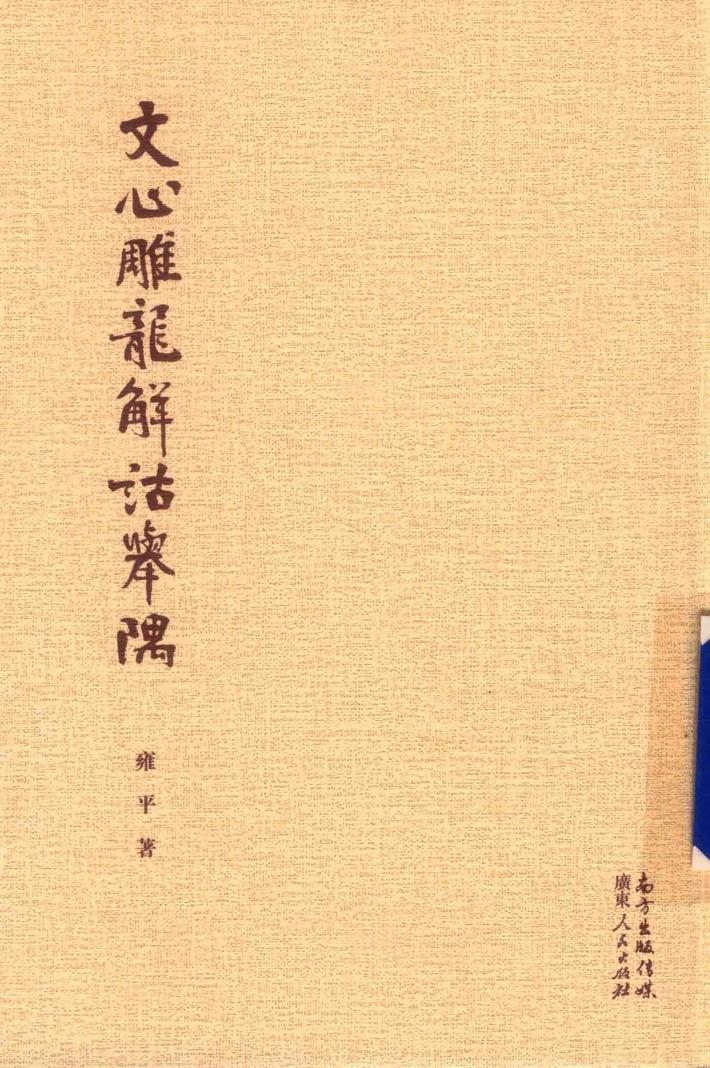 文心雕龍解詁舉隅
雍平著
南方出版传媒
廣東人民出版社